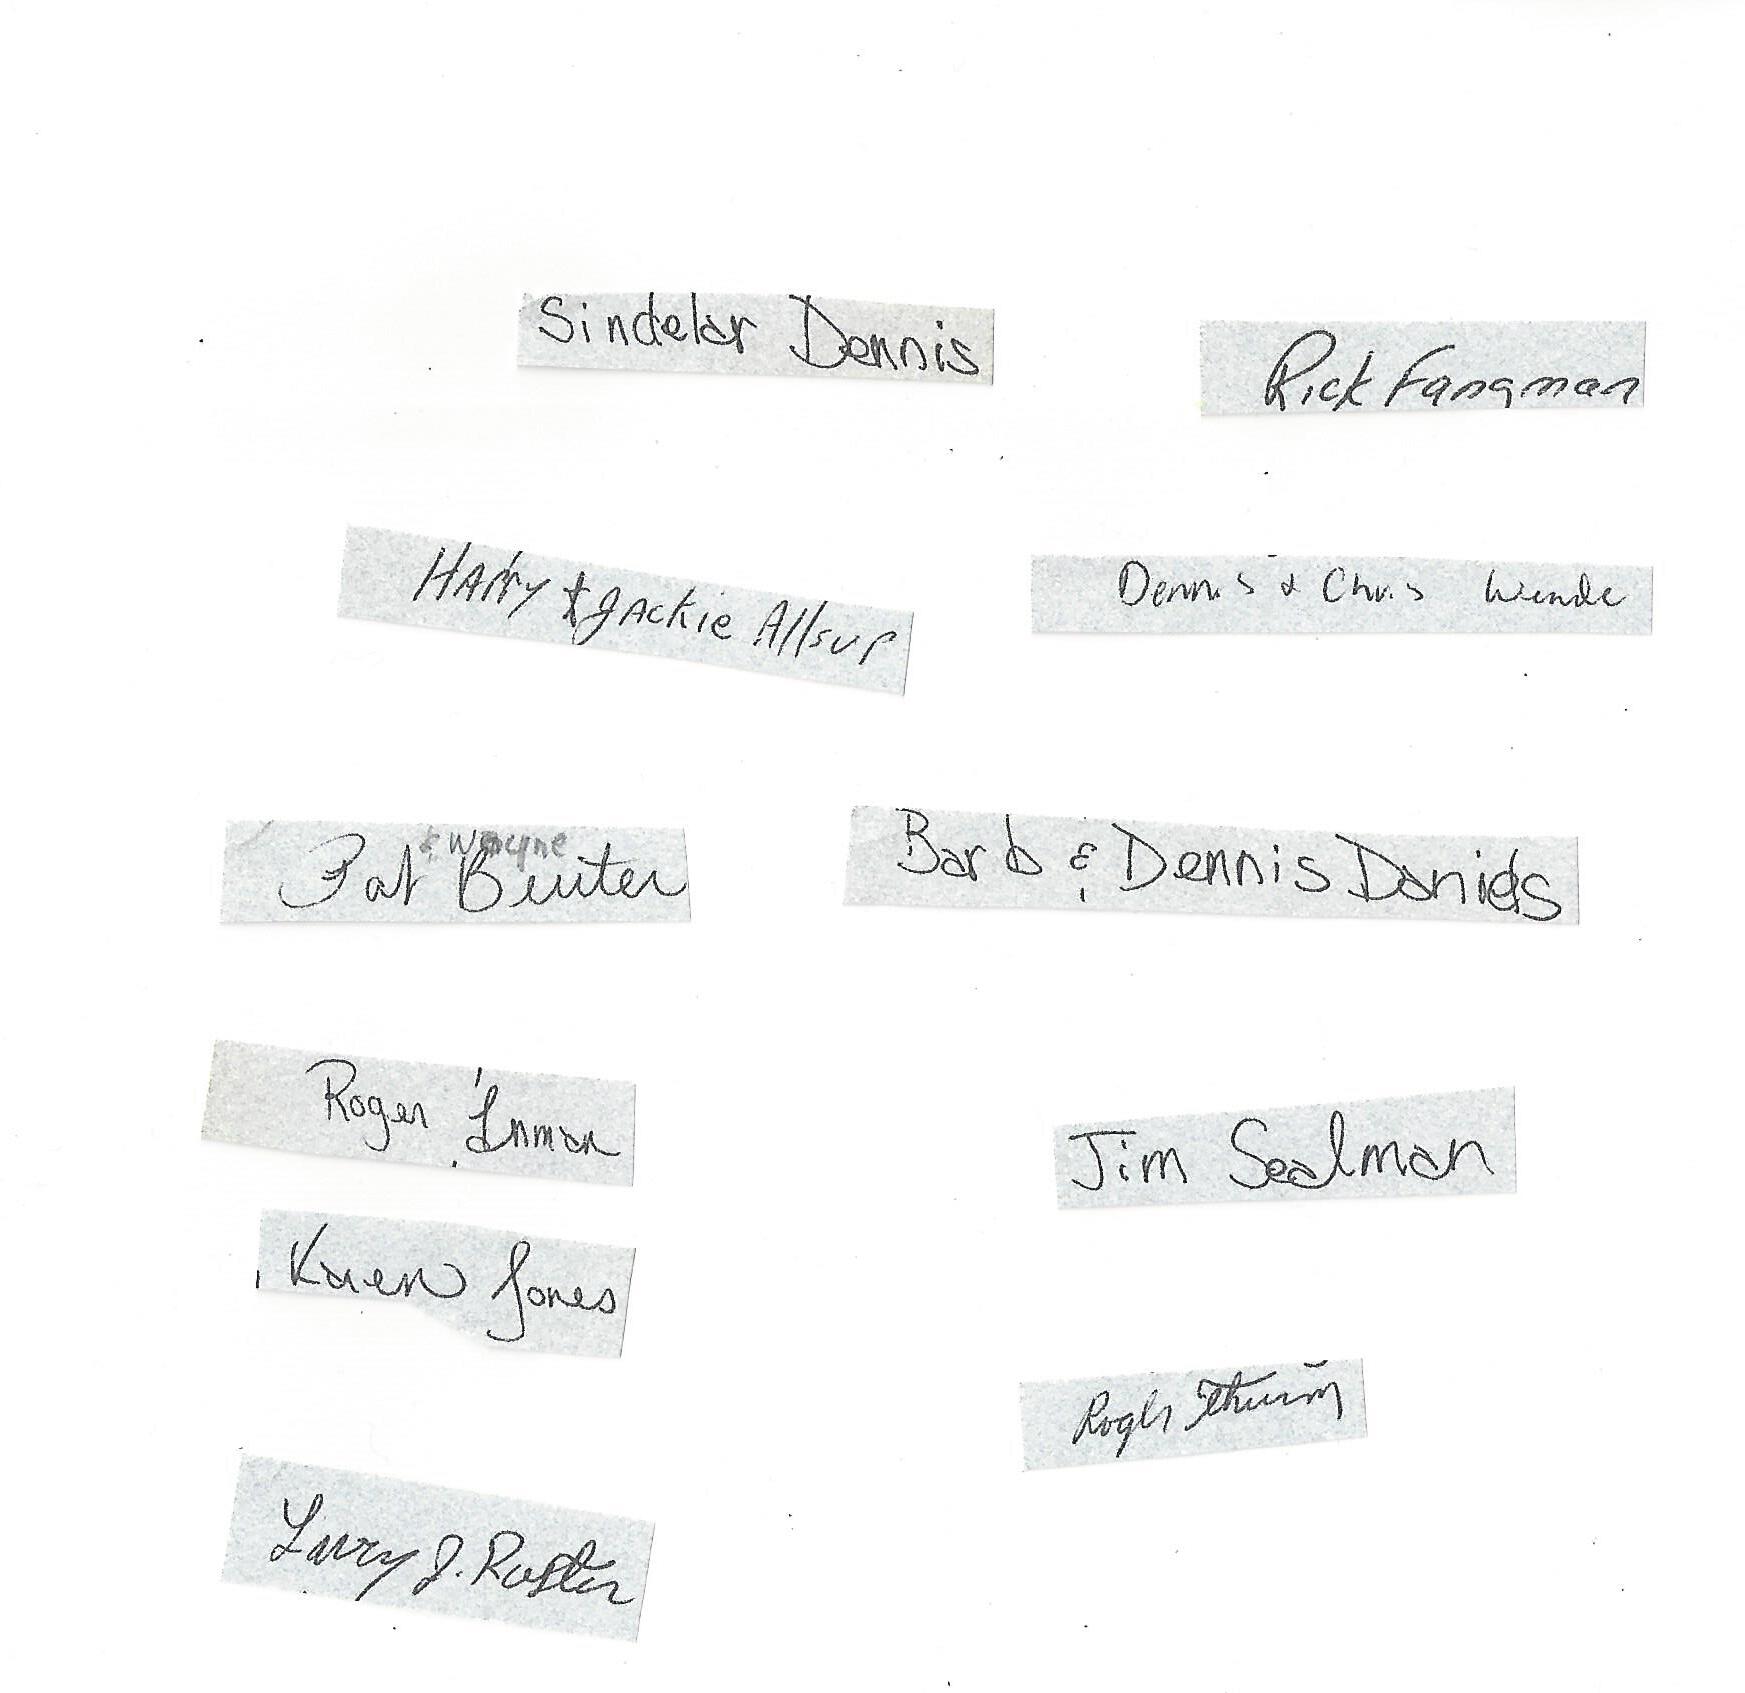 Sindelar Dennis
Rick Fangman
Harry & Jackie Allsup
Dennis & Chris Wende
& Wayne
Pat Beuter
Barb & Dennis Daniels
Roger Inman
Jim Sealman
Karen Jones
Roger Thurm
Larry J. Ruster